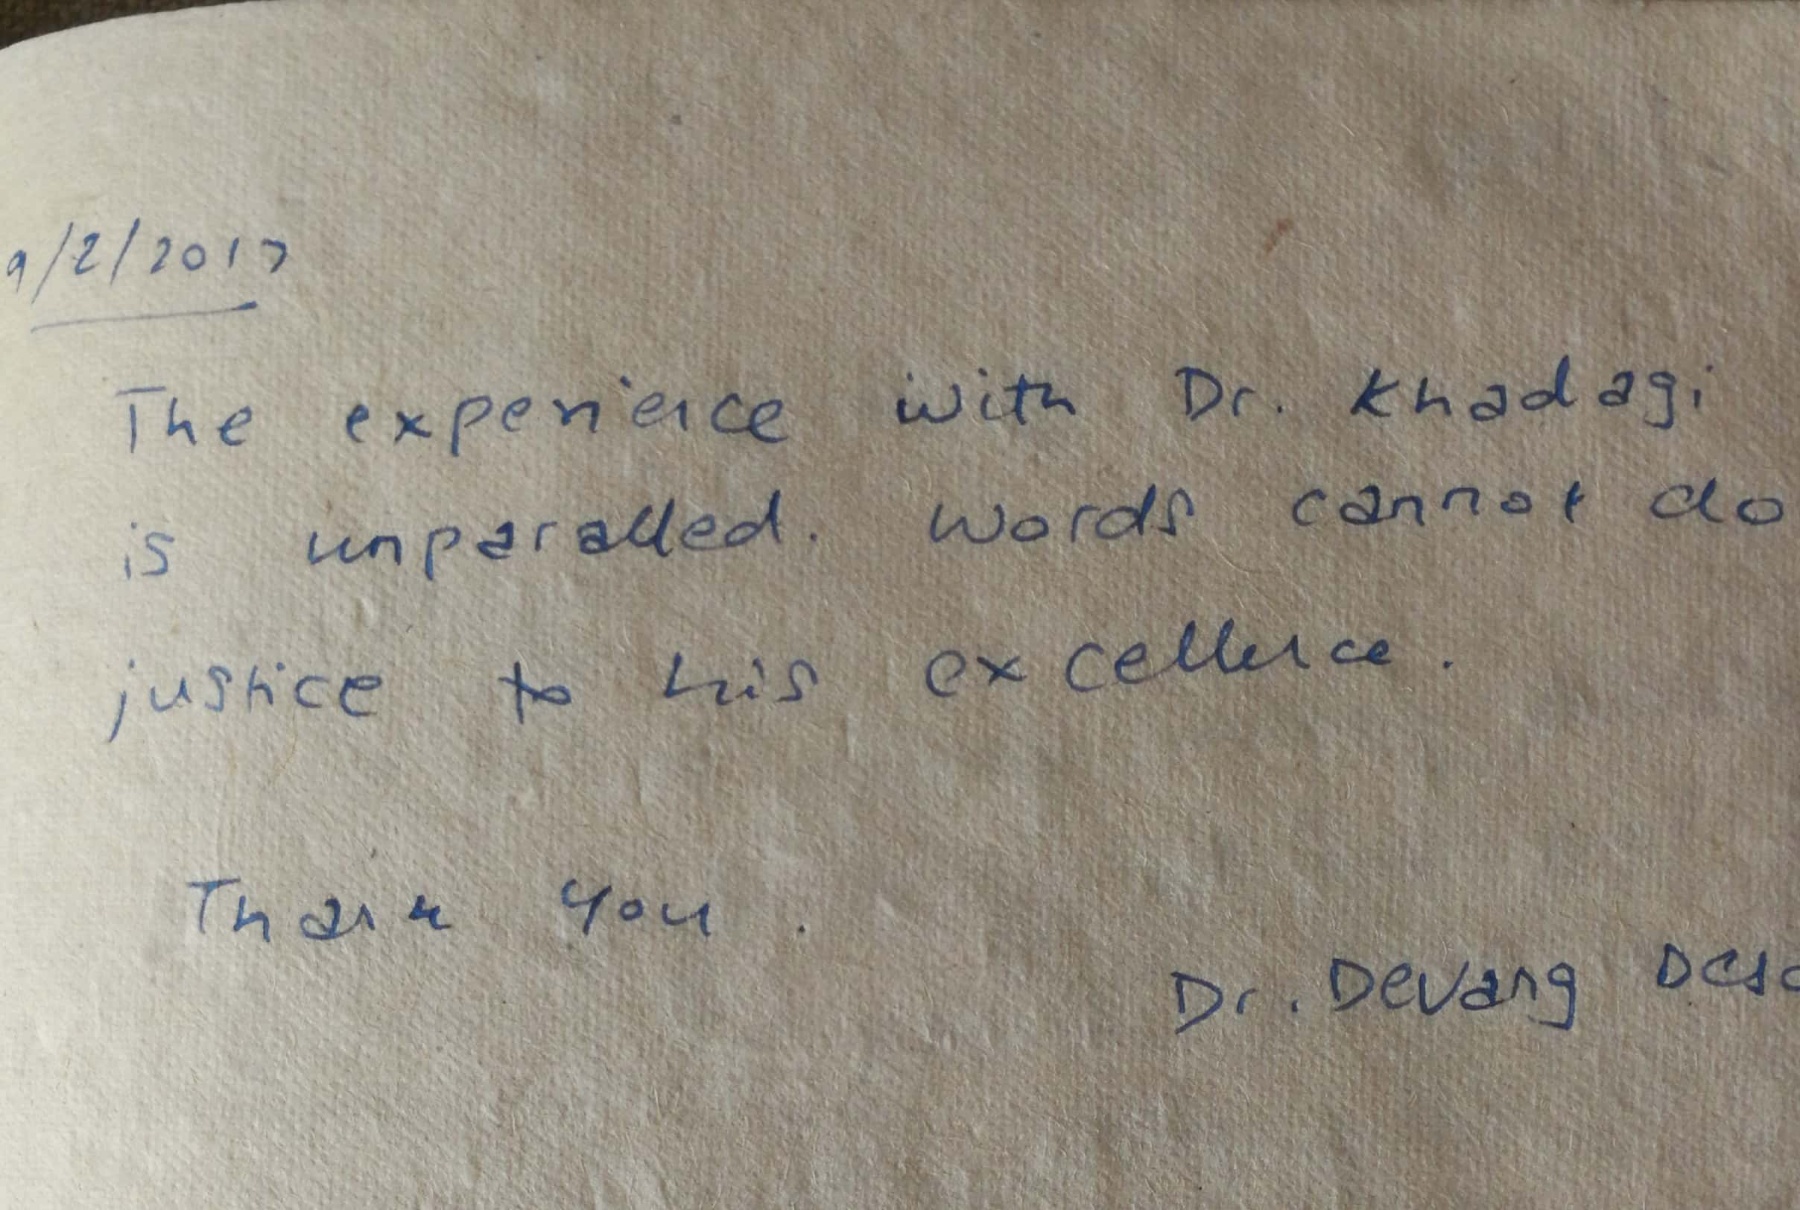 9/2/2017
The experience with Dr. Khadagi
is unparalled. Words cannot do
justice to his excellence.
Thank you.
Dr. Devang